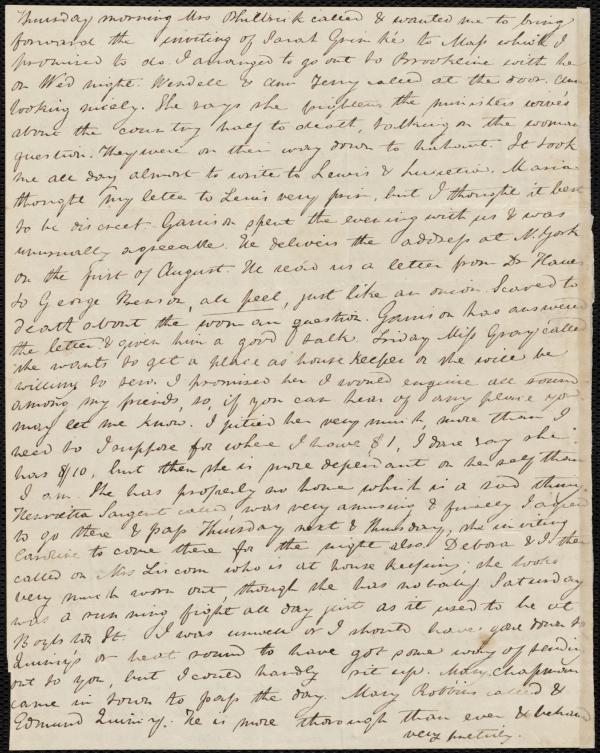 Thursday morning Mrs Philbrick called & wanted me to bring
forward the inviting of Sarah Grimké to Mass which I
promised to do. I arranged to go out to Brookline with her
on Wed night. Wendell & Ann Terry called at the door. Ann
looking nicely. She says she frightens the ministers wives
about the country half to death, talking on the woman
question. They were on their way down to Nahant. It took
me all day almost to write to Lewis & Lucretia. Maria
thought my letter to Lewis very prim, but I thought it best
to be discreet. Garrison spent the evening with us & was
unusually agreeable. He delivers the address at N. York
on the first of August. He read us a letter from Dr Hawes
to George Benson, all peel, just like an onion. Scared to
death about the woman question. Garrison has answered
the letter & given him a good talk. Friday Miss Gray called
she wants to get a place as house keeper or she will be
willing to sew. I promised her I would enquire all round
among my friends, so, if you can hear of any place you
may let me know. I pitied her very much, more than I
need to I suppose for where I have $1, I dare say she
has $10, but then she is more dependant on herself than
I am. She has properly no home which is a sad thing.
Henrietta Sargent called, was very amusing & finally I agreed
to go there & pass Thursday next & Thursday, she inviting
Caroline to come there for the night also. Debora & I then
called on Mrs Liscom who is at house keeping; she looks
very much worn out, though she has no baby. Saturday
was a running fight all day just as it used to be at
Boylston St. I was unwell or I should have gone down to
Quincy's or beat round to have got some way of sending
out to you, but I could hardly sit up. Mary Chapman
came in town to pass the day. Mary Robbins called &
Edmund Quincy. He is more thorough than ever & behaved
very prettily.